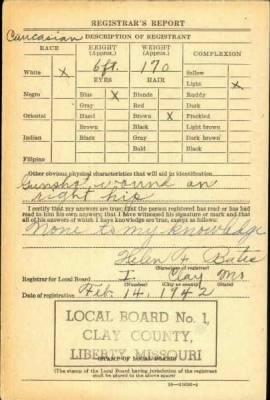 REGISTRAR'S REPORT
Caucasian DESCRIPTION OF REGISTRANT
RACE
HEIGHT (Approx.)
WEIGHT (Approx.)
COMPLEXION
6 ft. 170
White X
EYES HAIR
Sallow
Light X
Negro Blue X Blonde Ruddy
Gray Red Dark
Oriental Hazel Brown X Freckled
Brown Black Light brown
Indian Black Gray Dark brown
Bald Black
Filipino
Other obvious physical characteristics that will aid in identification
Gunshot wound on
right hip
I certify that my answers are true; that the person registered has read or has had
read to him his own answers; that I have witnessed his signature or mark and that
all of his answers of which I have knowledge are true, except as follows:
None to my knowledge
Helen F. Bates
(Signature of registrar)
Registrar for Local Board I Clay Mo
(Number) (City or county) (State)
Date of registration Feb. 14, 1942
LOCAL BOARD No. 1,
CLAY COUNTY,
LIBERTY, MISSOURI
(STAMP OF LOCAL BOARD)
(The stamp of the Local Board having jurisdiction of the registrant
shall be placed in the above space)